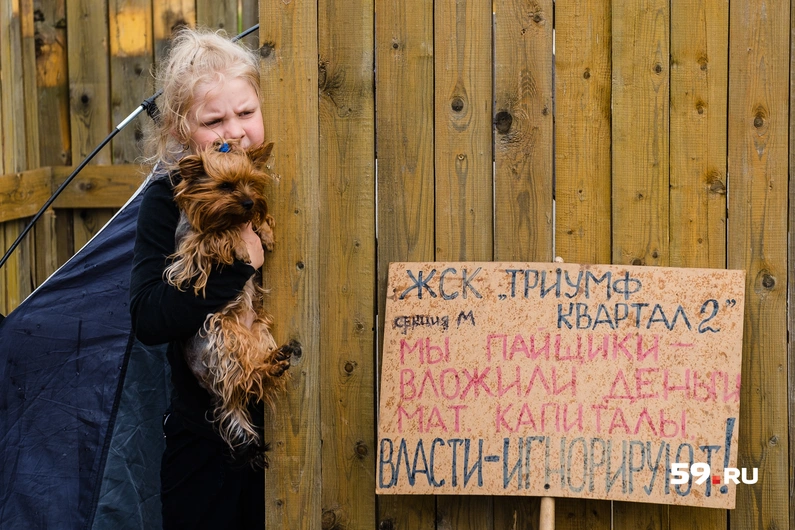 ЖСК „ТРИУМФ
КВАРТАЛ 2"
секция М
МЫ ПАЙЩИКИ-
ВЛОЖИЛИ ДЕНЬГИ
МАТ КАПИТАЛЫ
ВЛАСТИ-ИГНОРИРУЮТ!
59.RU